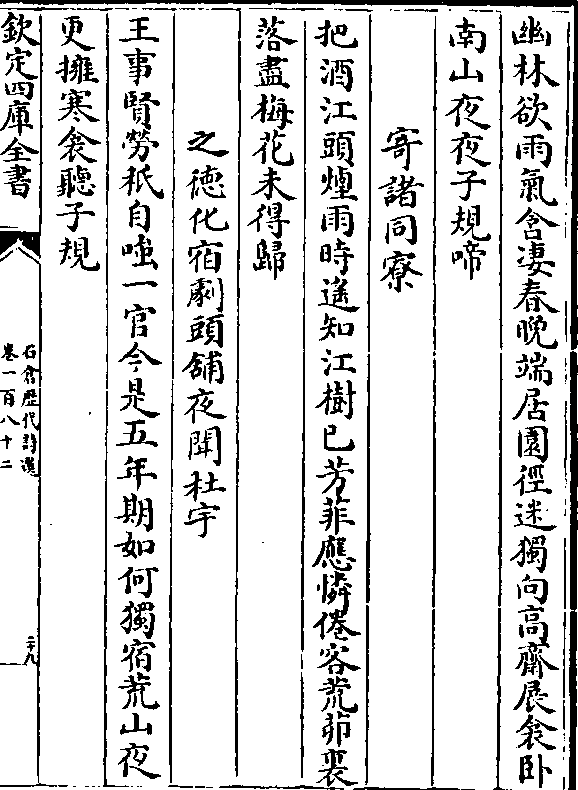 幽林欲雨氣含凄春晩端居園徑迷獨向高齋展衾卧
南山夜夜子規啼
寄諸同寮
把酒江頭煙雨時遙知江樹已芳菲應憐倦客荒茆裏
落盡梅花未得歸
之徳化宿劇頭鋪夜聞杜宇
王事賢勞秪自嗤一官今是五年期如何獨宿荒山夜
更擁寒衾聽子規
欽定四庫全書
石倉歴代詩選
卷一百八十二
二十九